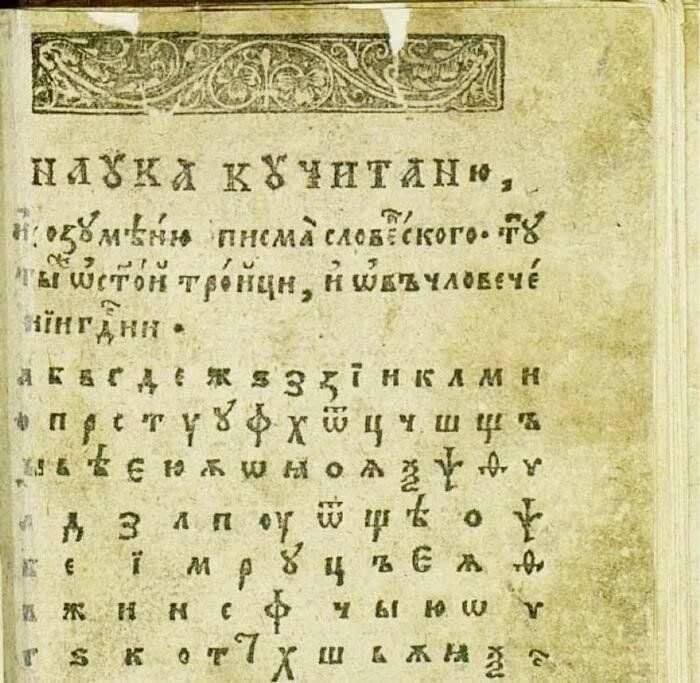 НАꙊКА КꙊЧИТАНю,
и҆розꙋмѣ́ню писма̀ словеⷩ҇ского. тꙋ
ты́ⷤ ѡ҆ст҃о́й тро́йци, и҆ ѡ҆въчловече́
нїи гдⷭ҇ни.
а б в г д е ж ѕ з ꙁ ї и к л м н
о п р с т у ꙋ ф х ѿ ц ч ш щ ъ
ы ь ѣ є ю ѫ ѡ ѩ о ѧ ѯ ѱ ѳ ѵ
а д з л п оу ѿ щ ѣ о ѱ
б е ї м р ꙋ ц ъ є ѧ ѳ
в ж и н с ф ч ы ю ѡ ѵ
г ѕ к о т х ш ь ѫ ѩ ѯ